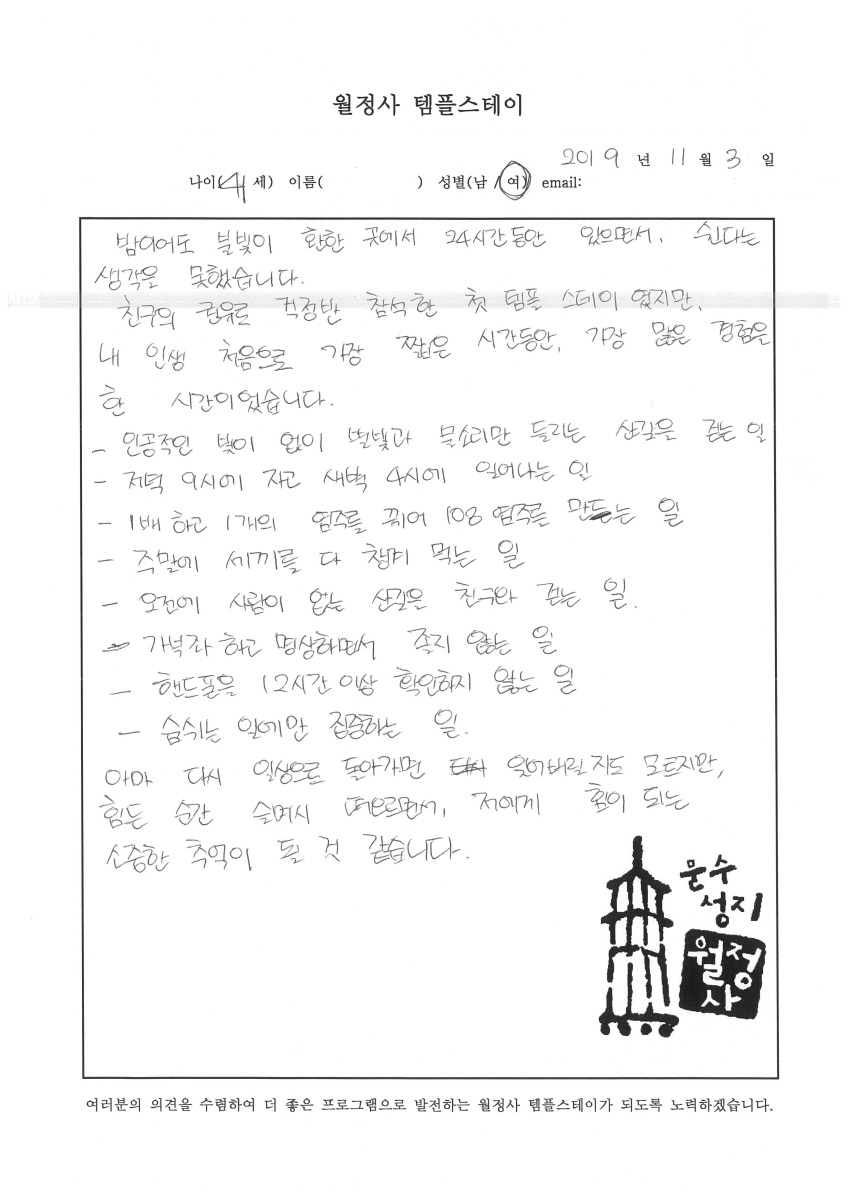 월정사 템플스테이
2019 년 11 월 3 일
나이( 세) 이름( ) 성별(남 / 여) email:
밤이어도 불빛이 환한 곳에서 24시간 동안 있으면서, 쉰다는
생각을 못했습니다.
친구의 권유로 걱정반 참석한 첫 템플 스테이 였지만,
내 인생 처음으로 가장 짧은 시간동안, 가장 많은 경험을
한 시간이었습니다.
- 인공적인 빛이 없이 별빛과 물소리만 들리는 산길을 걷는 일
- 저녁 9시에 자고 새벽 4시에 일어나는 일
- 1배 하고 1개의 염주를 꿰어 108 염주를 만드는 일
- 주말에 세끼를 다 챙겨 먹는 일
- 오전에 사람이 없는 산길을 친구와 걷는 일.
- 가부좌 하고 명상하면서 졸지 않는 일
- 핸드폰을 12시간 이상 확인하지 않는 일
- 숨쉬는 일에만 집중하는 일.
아마 다시 일상으로 돌아가면 잊어버릴지도 모르지만,
힘든 순간 슬며시 떠오르면서, 저에게 힘이 되는
소중한 추억이 될 것 같습니다.
문수
성지
월정
사
여러분의 의견을 수렴하여 더 좋은 프로그램으로 발전하는 월정사 템플스테이가 되도록 노력하겠습니다.